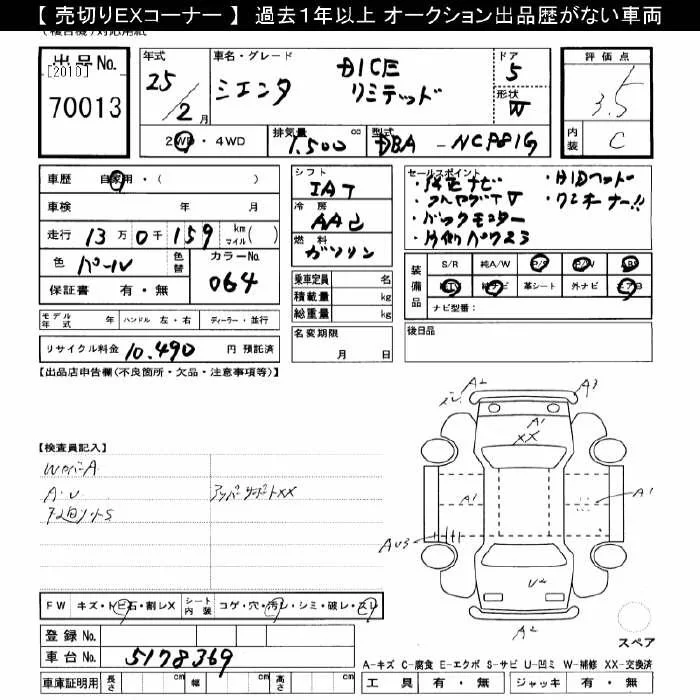 【 売切りEXコーナー 】 過去１年以上 オークション出品歴がない車両
出 品 No. [2010]
70013
年式 25 2 月
車名・グレード シエンタ DICE リミテッド
ドア 5
形状 W
2WD・4WD
排気量 1,500 cc
型式 DBA - NCP81G
評 価 点 3.5
内装 C
車歴 自家用・( )
車検 年 月
走行 13 万 0 千 159 km マイル ( )
色 パール 色替 カラーNo. 064
保証書 有・無
シフト IAT
冷房
燃料 ガソリン
乗車定員 名
積載量 kg
総重量 kg
セールスポイント
・純正ナビ ・HIDヘッド
・フルセグTV ・ワンオーナー!!
・バックモニター
・片側パワスラ
装備品 S/R 純A/W P/S P/W ABS
純TV 純ナビ 革シート 外ナビ エアB
ナビ型番：
モデル年式 年 ハンドル 左・右 ディーラー・並行
リサイクル料金 10,490 円 預託済
名変期限 月 日
後日品
【出品店申告欄(不良箇所・欠品・注意事項等)】
【検査員記入】
WカバーA
A・U アッパーサポートXX
下回りソトS
A2 A3
A1
XX
A1 A1
AU3
U2
A2
FW キズ・トビ石・割レX シート内装 コゲ・穴・汚レ・シミ・破レ・スレ
登録 No.
車台 No. 5178369
スペア
A-キズ C-腐食 E-エクボ S-サビ U-凹ミ W-補修 XX-交換済
車庫証明用 長さ cm 幅 cm 高さ cm
工具 有・無 ジャッキ 有・無